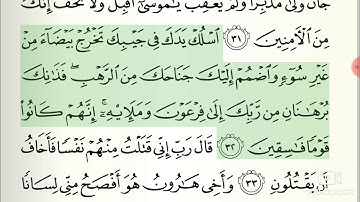 جَآنٌّ وَلَّىٰ مُدْبِرًا وَلَمْ يُعَقِّبْ يَـٰمُوسَىٰٓ أَقْبِلْ وَلَا تَخَفْ إِنَّكَ
مِنَ الْـَٔامِنِينَ ٣١ اسْلُكْ يَدَكَ فِى جَيْبِكَ تَخْرُجْ بَيْضَآءَ مِنْ
غَيْرِ سُوٓءٍ وَاضْمُمْ إِلَيْكَ جَنَاحَكَ مِنَ الرَّهْبِ فَذَٰنِكَ
بُرْهَـٰنَانِ مِن رَّبِّكَ إِلَىٰ فِرْعَوْنَ وَمَلَإِي۟هِۦٓ إِنَّهُمْ كَانُوا۟
قَوْمًا فَـٰسِقِينَ ٣٢ قَالَ رَبِّ إِنِّى قَتَلْتُ مِنْهُمْ نَفْسًا فَأَخَافُ
أَن يَقْتُلُونِ ٣٣ وَأَخِى هَـٰرُونُ هُوَ أَفْصَحُ مِنِّى لِسَانًا